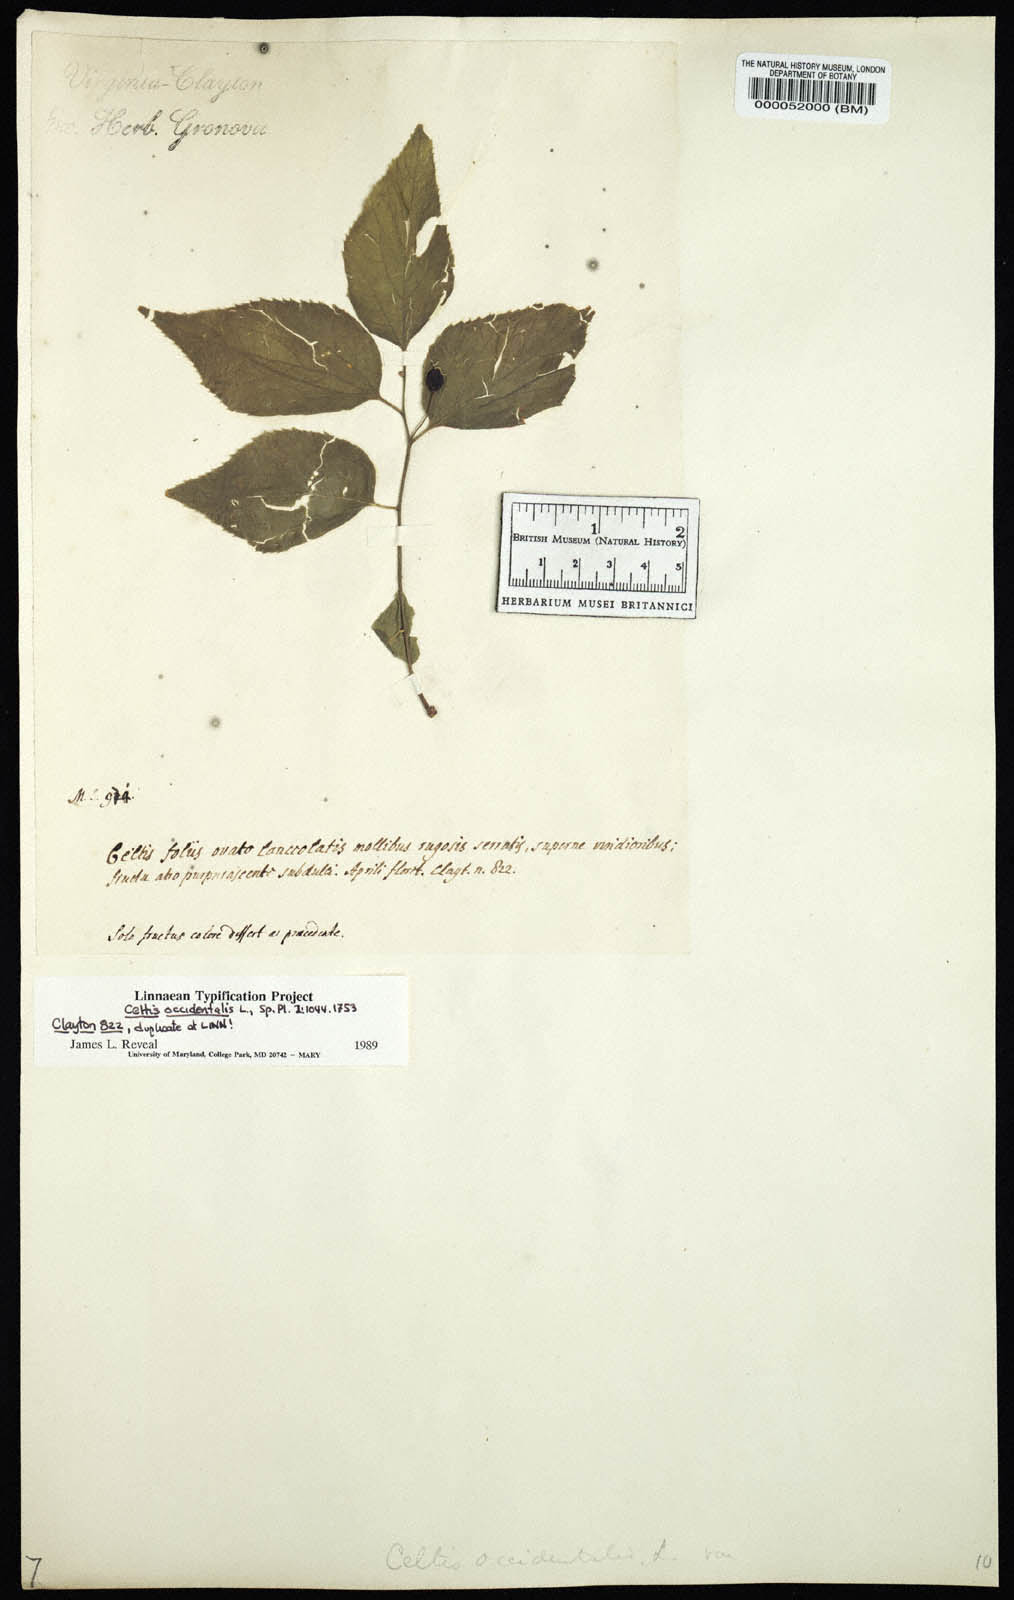 THE NATURAL HISTORY MUSEUM, LONDON
DEPARTMENT OF BOTANY
000052000 (BM)
Virginia-Clayton
Herb. Gronovii
1 2
BRITISH MUSEUM (NATURAL HISTORY)
1 2 3 4 5
HERBARIUM MUSEI BRITANNICI
Celtis foliis ovato lanceolatis mollibus rugosis serratis, superne viridioribus;
fructu atro purpurascente subdulci. Aprili floret. Clayt. n. 822.
Solo fructus colore differt a praecedente.
Linnaean Typification Project
Celtis occidentalis L., Sp. Pl. 2:1044. 1753
Clayton 822, duplicate at LINN!
James L. Reveal 1989
University of Maryland, College Park, MD 20742 – MARY
Celtis occidentalis, L. var
7
10